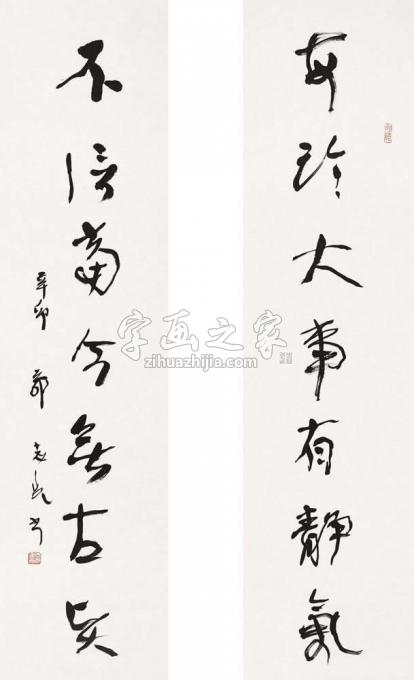 每臨大事有靜氣
不信當今無古賢
辛卯
字画之家
zihuazhijia.com